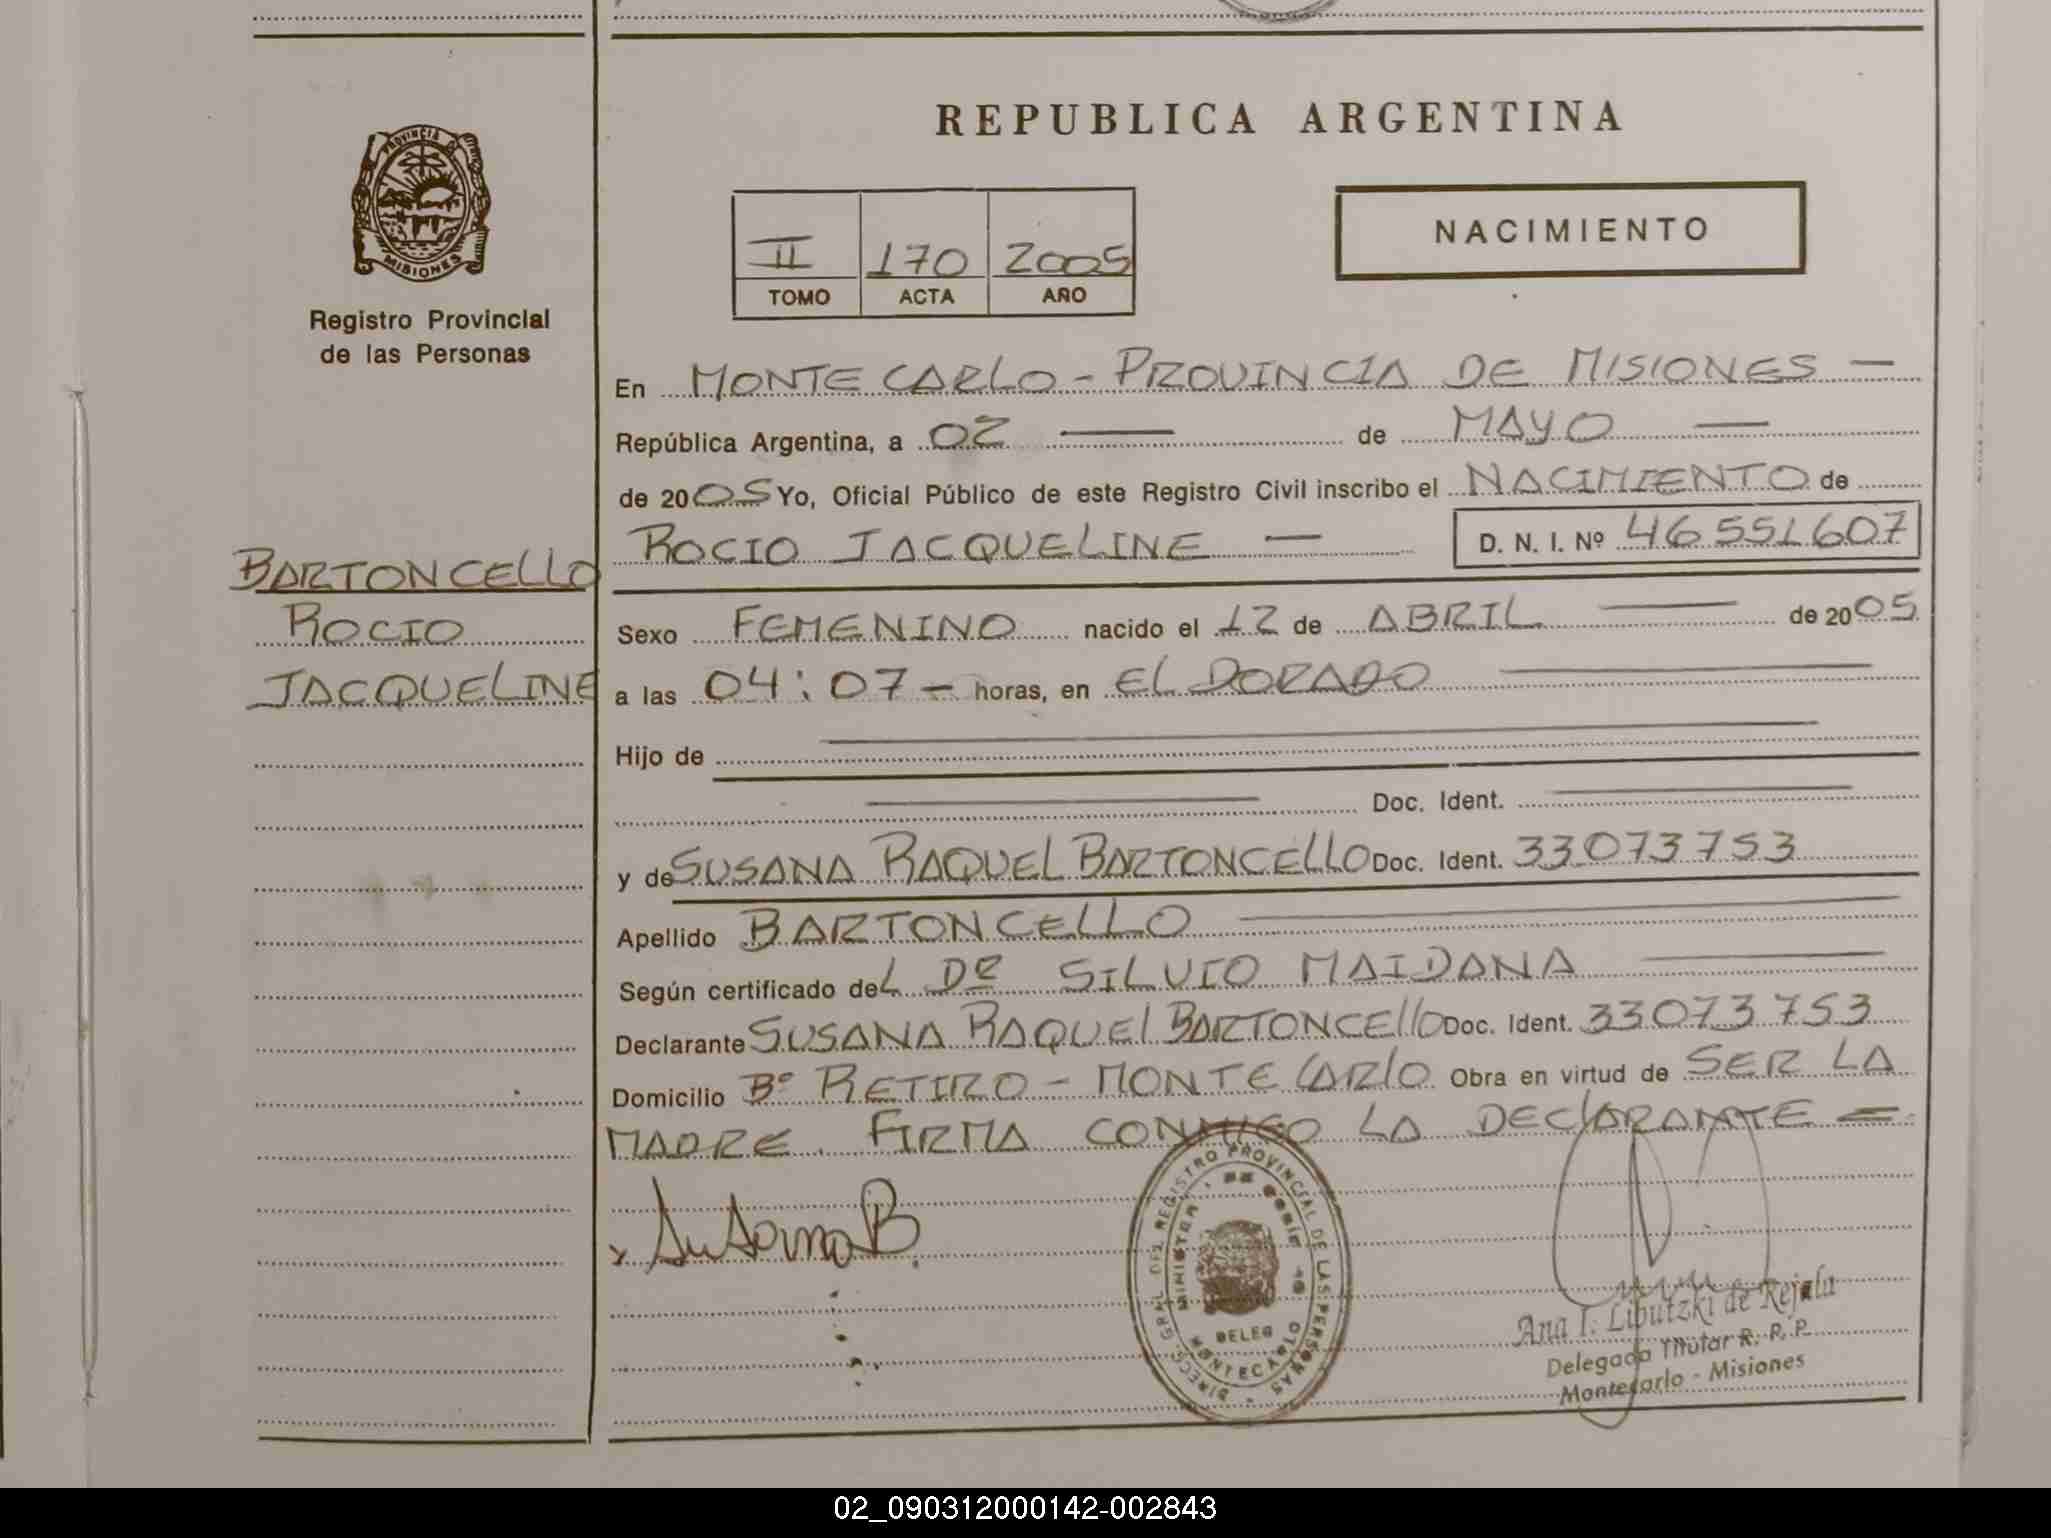 REPUBLICA ARGENTINA
PROVINCIA DE
MISIONES
Registro Provincial
de las Personas
II 170 2005
TOMO ACTA AÑO
NACIMIENTO
En MONTECARLO - PROVINCIA DE MISIONES —
República Argentina, a 02 — de MAYO —
de 2005 Yo, Oficial Público de este Registro Civil inscribo el NACIMIENTO de
ROCIO JACQUELINE — D. N. I. Nº 46 551 607
BARTONCELLO
ROCIO
JACQUELINE
Sexo FEMENINO nacido el 12 de ABRIL — de 2005
a las 04:07 - horas, en ELDORADO —
Hijo de —
— Doc. Ident. —
y de SUSANA RAQUEL BARTONCELLO Doc. Ident. 33 073 753
Apellido BARTONCELLO —
Según certificado deL Dr SILVIO MAIDANA —
Declarante SUSANA RAQUEL BARTONCELLO Doc. Ident. 33 073 753
Domicilio Bº RETIRO - MONTECARLO Obra en virtud de SER LA
MADRE. FIRMA CONMIGO LA DECLARANTE =
x Susana B.
DIRECC. GRAL. DEL REGISTRO PROVINCIAL DE LAS PERSONAS
DELEG
MONTECARLO
Ana I. Liputzki de Rejala
Delegada Titular R. R. P.
Montecarlo - Misiones
02_090312000142-002843